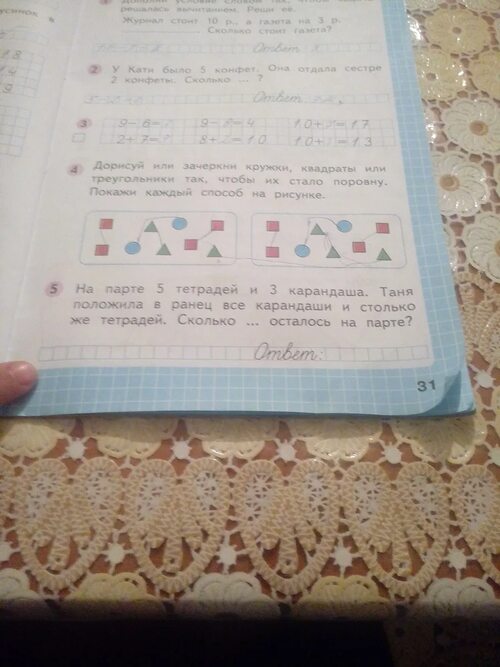 решалась вычитанием. Реши её.
Журнал стоит 10 р., а газета на 3 р.
Сколько стоит газета?
Ответ
2 У Кати было 5 конфет. Она отдала сестре
2 конфеты. Сколько ... ?
Ответ
3 9-6= 9- =4 10+ =17
2+7= 8+ =10 10+ =13
4 Дорисуй или зачеркни кружки, квадраты или
треугольники так, чтобы их стало поровну.
Покажи каждый способ на рисунке.
5 На парте 5 тетрадей и 3 карандаша. Таня
положила в ранец все карандаши и столько
же тетрадей. Сколько ... осталось на парте?
Ответ:
31